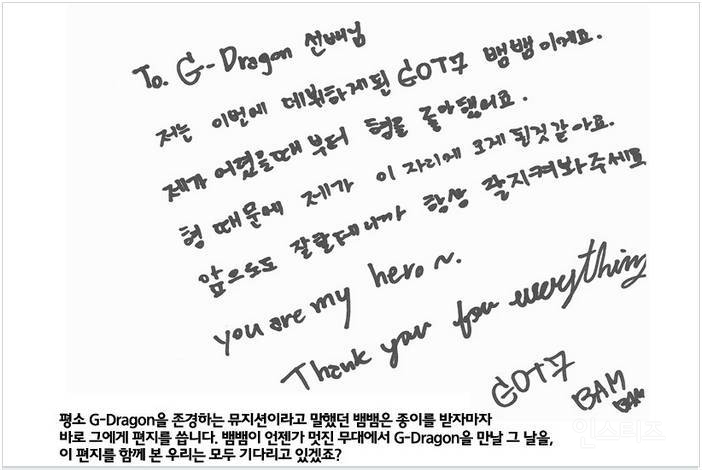 To. G-Dragon 선배님
저는 이번에 데뷔하게된 GOT7 뱀뱀이에요.
제가 어렸을때 부터 형을 좋아했어요.
형 때문에 제가 이 자리에 오게 된것 같아요.
앞으도도 잘할테니까 항상 잘지켜봐주세요
you are my hero~.
Thank you for everything
GOT7
BAM
BAM
평소 G-Dragon을 존경하는 뮤지션이라고 말했던 뱀뱀은 종이를 받자마자
바로 그에게 편지를 씁니다. 뱀뱀이 언젠가 멋진 무대에서 G-Dragon을 만날 그 날을,
이 편지를 함께 본 우리는 모두 기다리고 있겠죠?
인스티즈